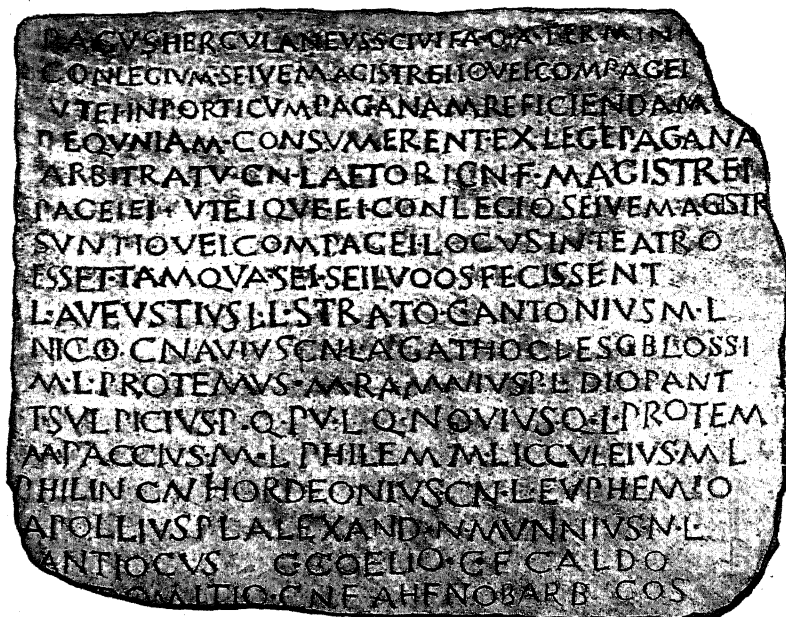 PAGVS HERCVLANEVS SCIVIT A·D·X TERMINA
CONLEGIVM·SEIVE MAGISTREI IOVEI COMPAGEI
VTEI IN PORTICVM PAGANAM REFICIENDAM
PEQVNIAM·CONSVMERENT·EX LEGE PAGANA
ARBITRATV·CN·LAETORI CN·F·MAGISTREI
PAGEIEI·VTEIQVE EI·CONLEGIO SEIVE MAGISTR
SVNT IOVEI COMPAGEI·LOCVS IN TEATRO
ESSET·TAMQVA·SEI·SEI LVDOS FECISSENT
L·AVFVSTIVS L·L·STRATO·C·ANTONIVS M·L
NICO·CN AVIVS CN·L·AGATHOCLES C BLOSSI
M·L·PROTEMVS·M·RAMNIVS P·L·DIOPANT
T·SVLPICIVS P·Q·PV·L Q·NOVIVS Q·L·PROTEM
M·PACCIVS·M·L PHILEM M·LICCVLEIVS·M L
PHILIN CN HORDEONIVS·CN·L·EVPHEMIO
A POLLIVS P L ALEXAND·N·MVNNIVS·N·L
ANTIOCVS C COELIO·C·F CALDO
DOMITIO·CN F AHENOBARB COS